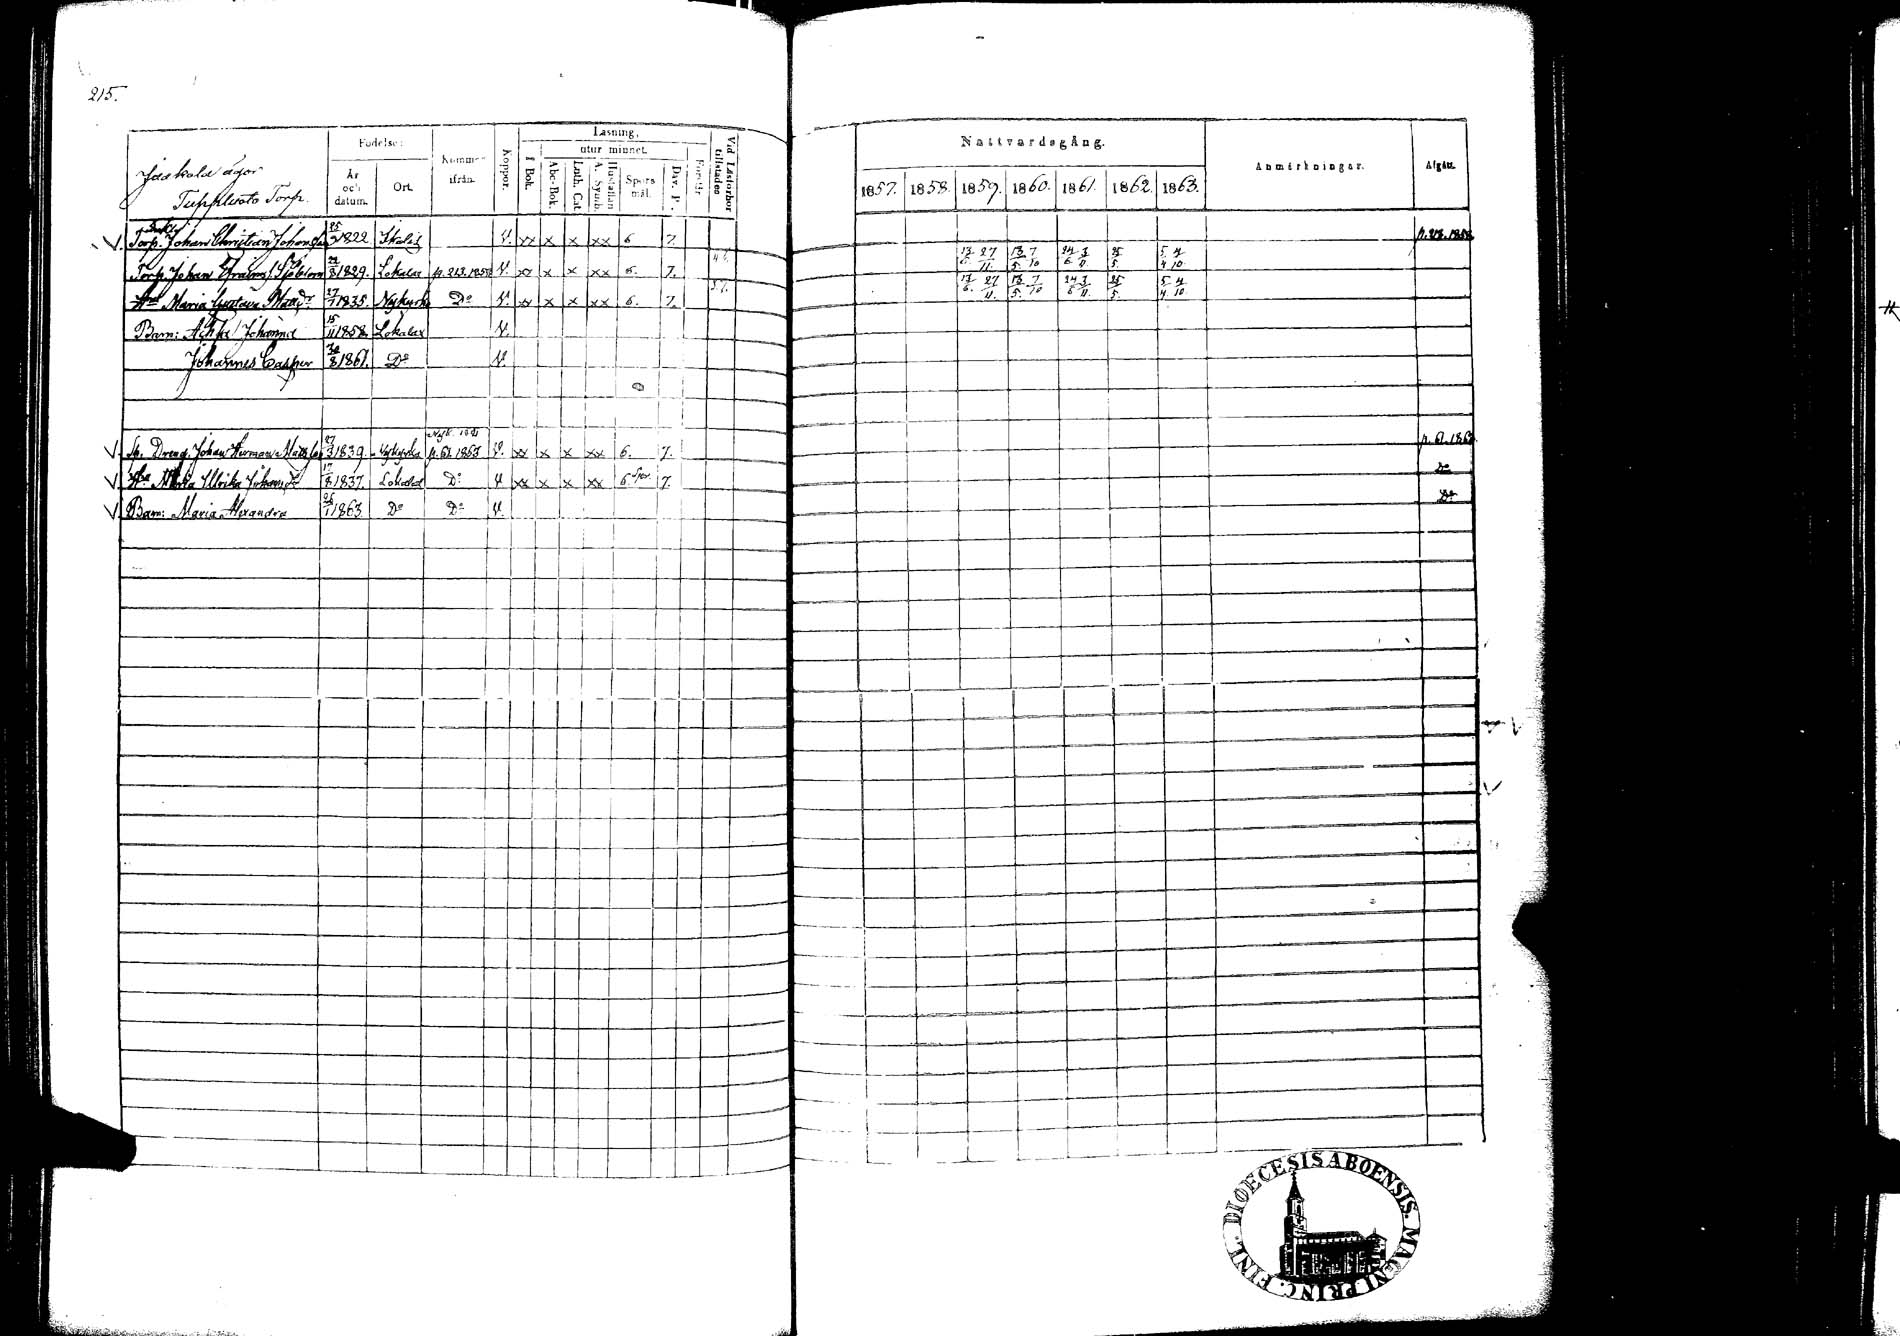 215.
Jaskala ägor
Tuppluoto Torp.
Födelse:
År och datum.
Ort.
Kommen ifrån.
Koppor.
Läsning,
utur minnet.
I Bok.
Abc-Bok.
Luth. Cat.
Hustaflan A. Symb.
Spörsmål.
Dav. P.
Förstår
Vid Läsförhör tillstädes
Nattvardsgång.
1857. 1858. 1859. 1860. 1861. 1862. 1863.
Anmärkningar.
Afgått.
Torp. Johan Christian Johansson 25/3 1822 V. xx x x xx 6 7. p. 213. 1858
Torp. Johan 1829. Lokalax p. 213. 1858 V. xx x x xx 6. 7. 13/6. 27/11. 13/5. 7/10 24/6 3/11. 25/5. 5/4 4/10.
Maria Gustava 27/1 1835. Nykyrka Do V. xx x x xx 6. 7. 13/6. 27/11. 13/5. 7/10 24/6 3/11. 25/5. 5/4 4/10
Barn: Johanna 15/11 1858. Lokalax V.
Johannes Casper 1861. Do V.
Dreng Johan Herman 27/3 1839. Nykyrka p. 61. 1863 V. xx x x xx 6. 7. p. 61. 1863
Maria Ulrika Johansdr 17/8 1837. Lokalax Do V xx x x xx 6 7. Do
Barn: Maria Alexandra 25/1 1863. Do Do V. Do
DIOECESIS ABOENSIS. MAGNI PRINC. FINL.